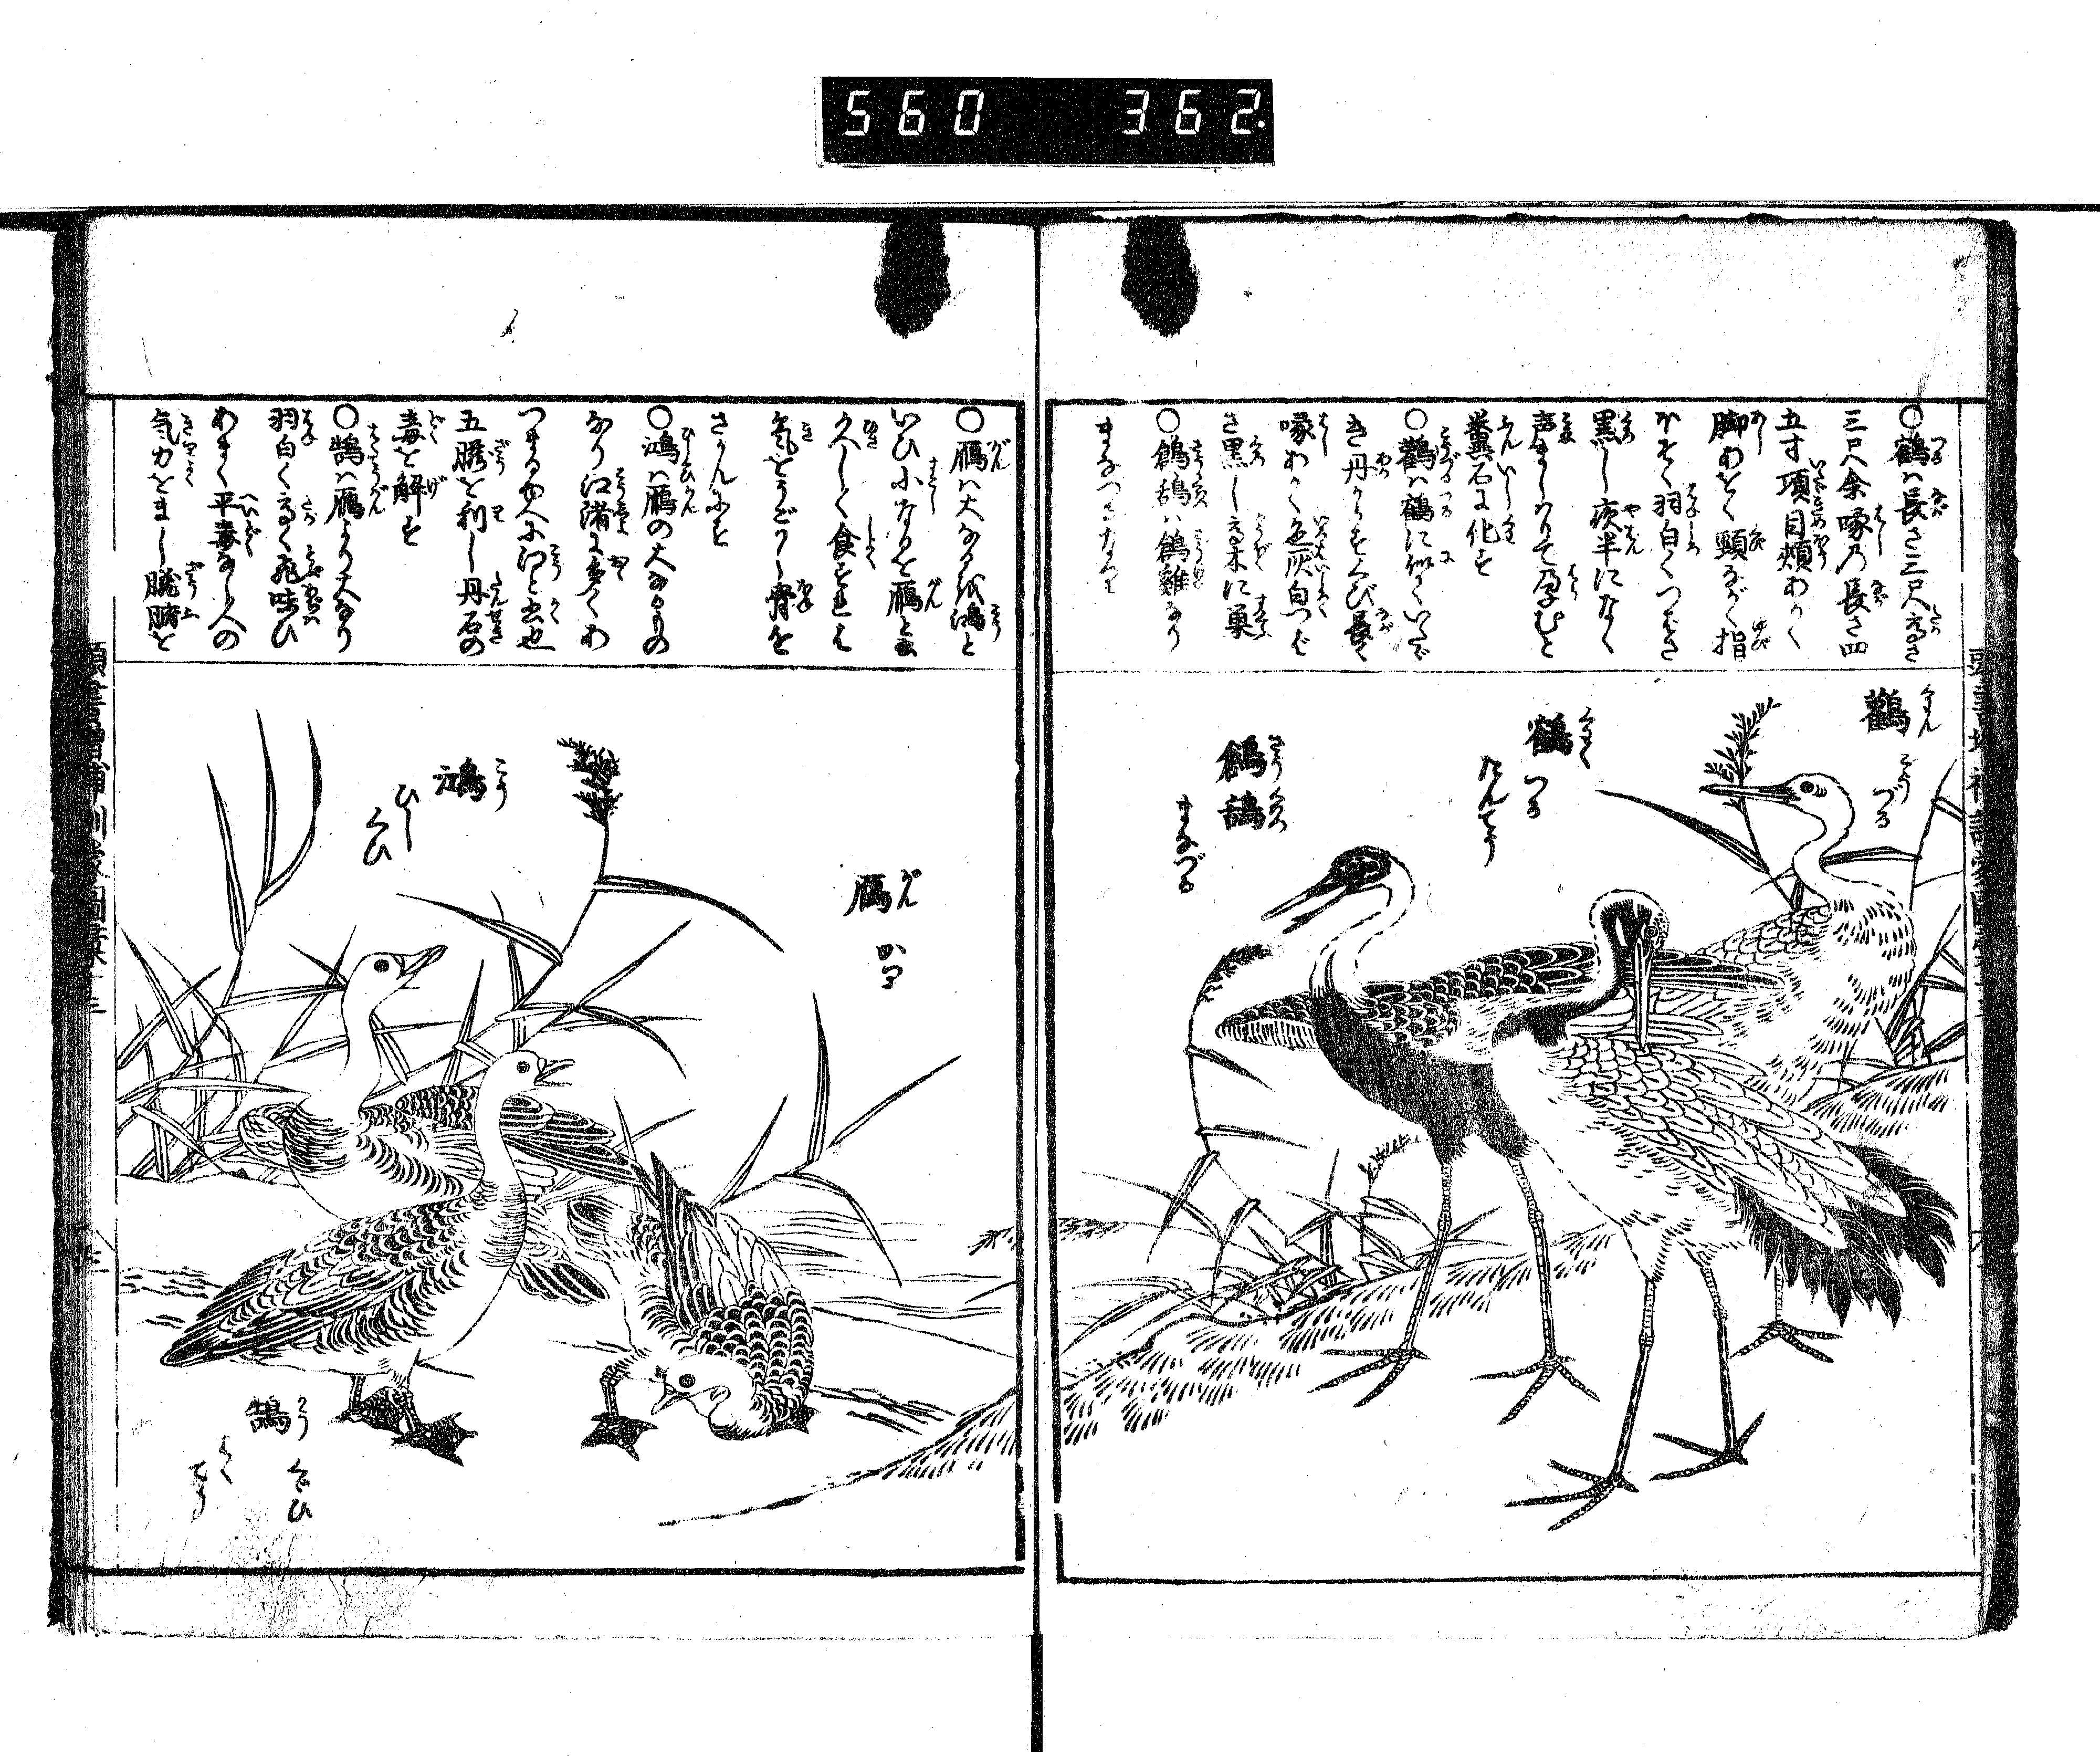 560 362
○鶴ハ長さ三尺高さ
三尺余喙乃長さ四
五寸項目頬あかく
脚あをく頸ながく指
ほそく羽白くつばさ
黒し夜半になく
声ましハりて孕むと
糞石に化す
○鸛ハ鶴に似ていたゞ
き丹からずくび長く
喙あかく色灰白つば
さ黒し高木に巣
○鶬鴰ハ鶬雞なり
まなづるなり
鸛 くわん こう づる
鶴 くわく つる たんてう
鶬鴰 さうくわつ まなづる
○鴈ハ大なるを鴻と
いひ小なるを鴈と云
久しく食すれば
気をうごかし骨を
さかんにす
○鴻ハ鴈の大なるもの
なり江渚に多くあ
つまる故に江に
五臓を利し丹石の
毒を解す
○鵠ハ鴈より大なり
羽白く高く飛味ひ
あまく平毒なし人の
気力をまし臓腑を
鴈 がん かり
鴻 こう ひしくひ
鵠 こう くゞひ はくてう
頭書増補訓蒙図彙十三